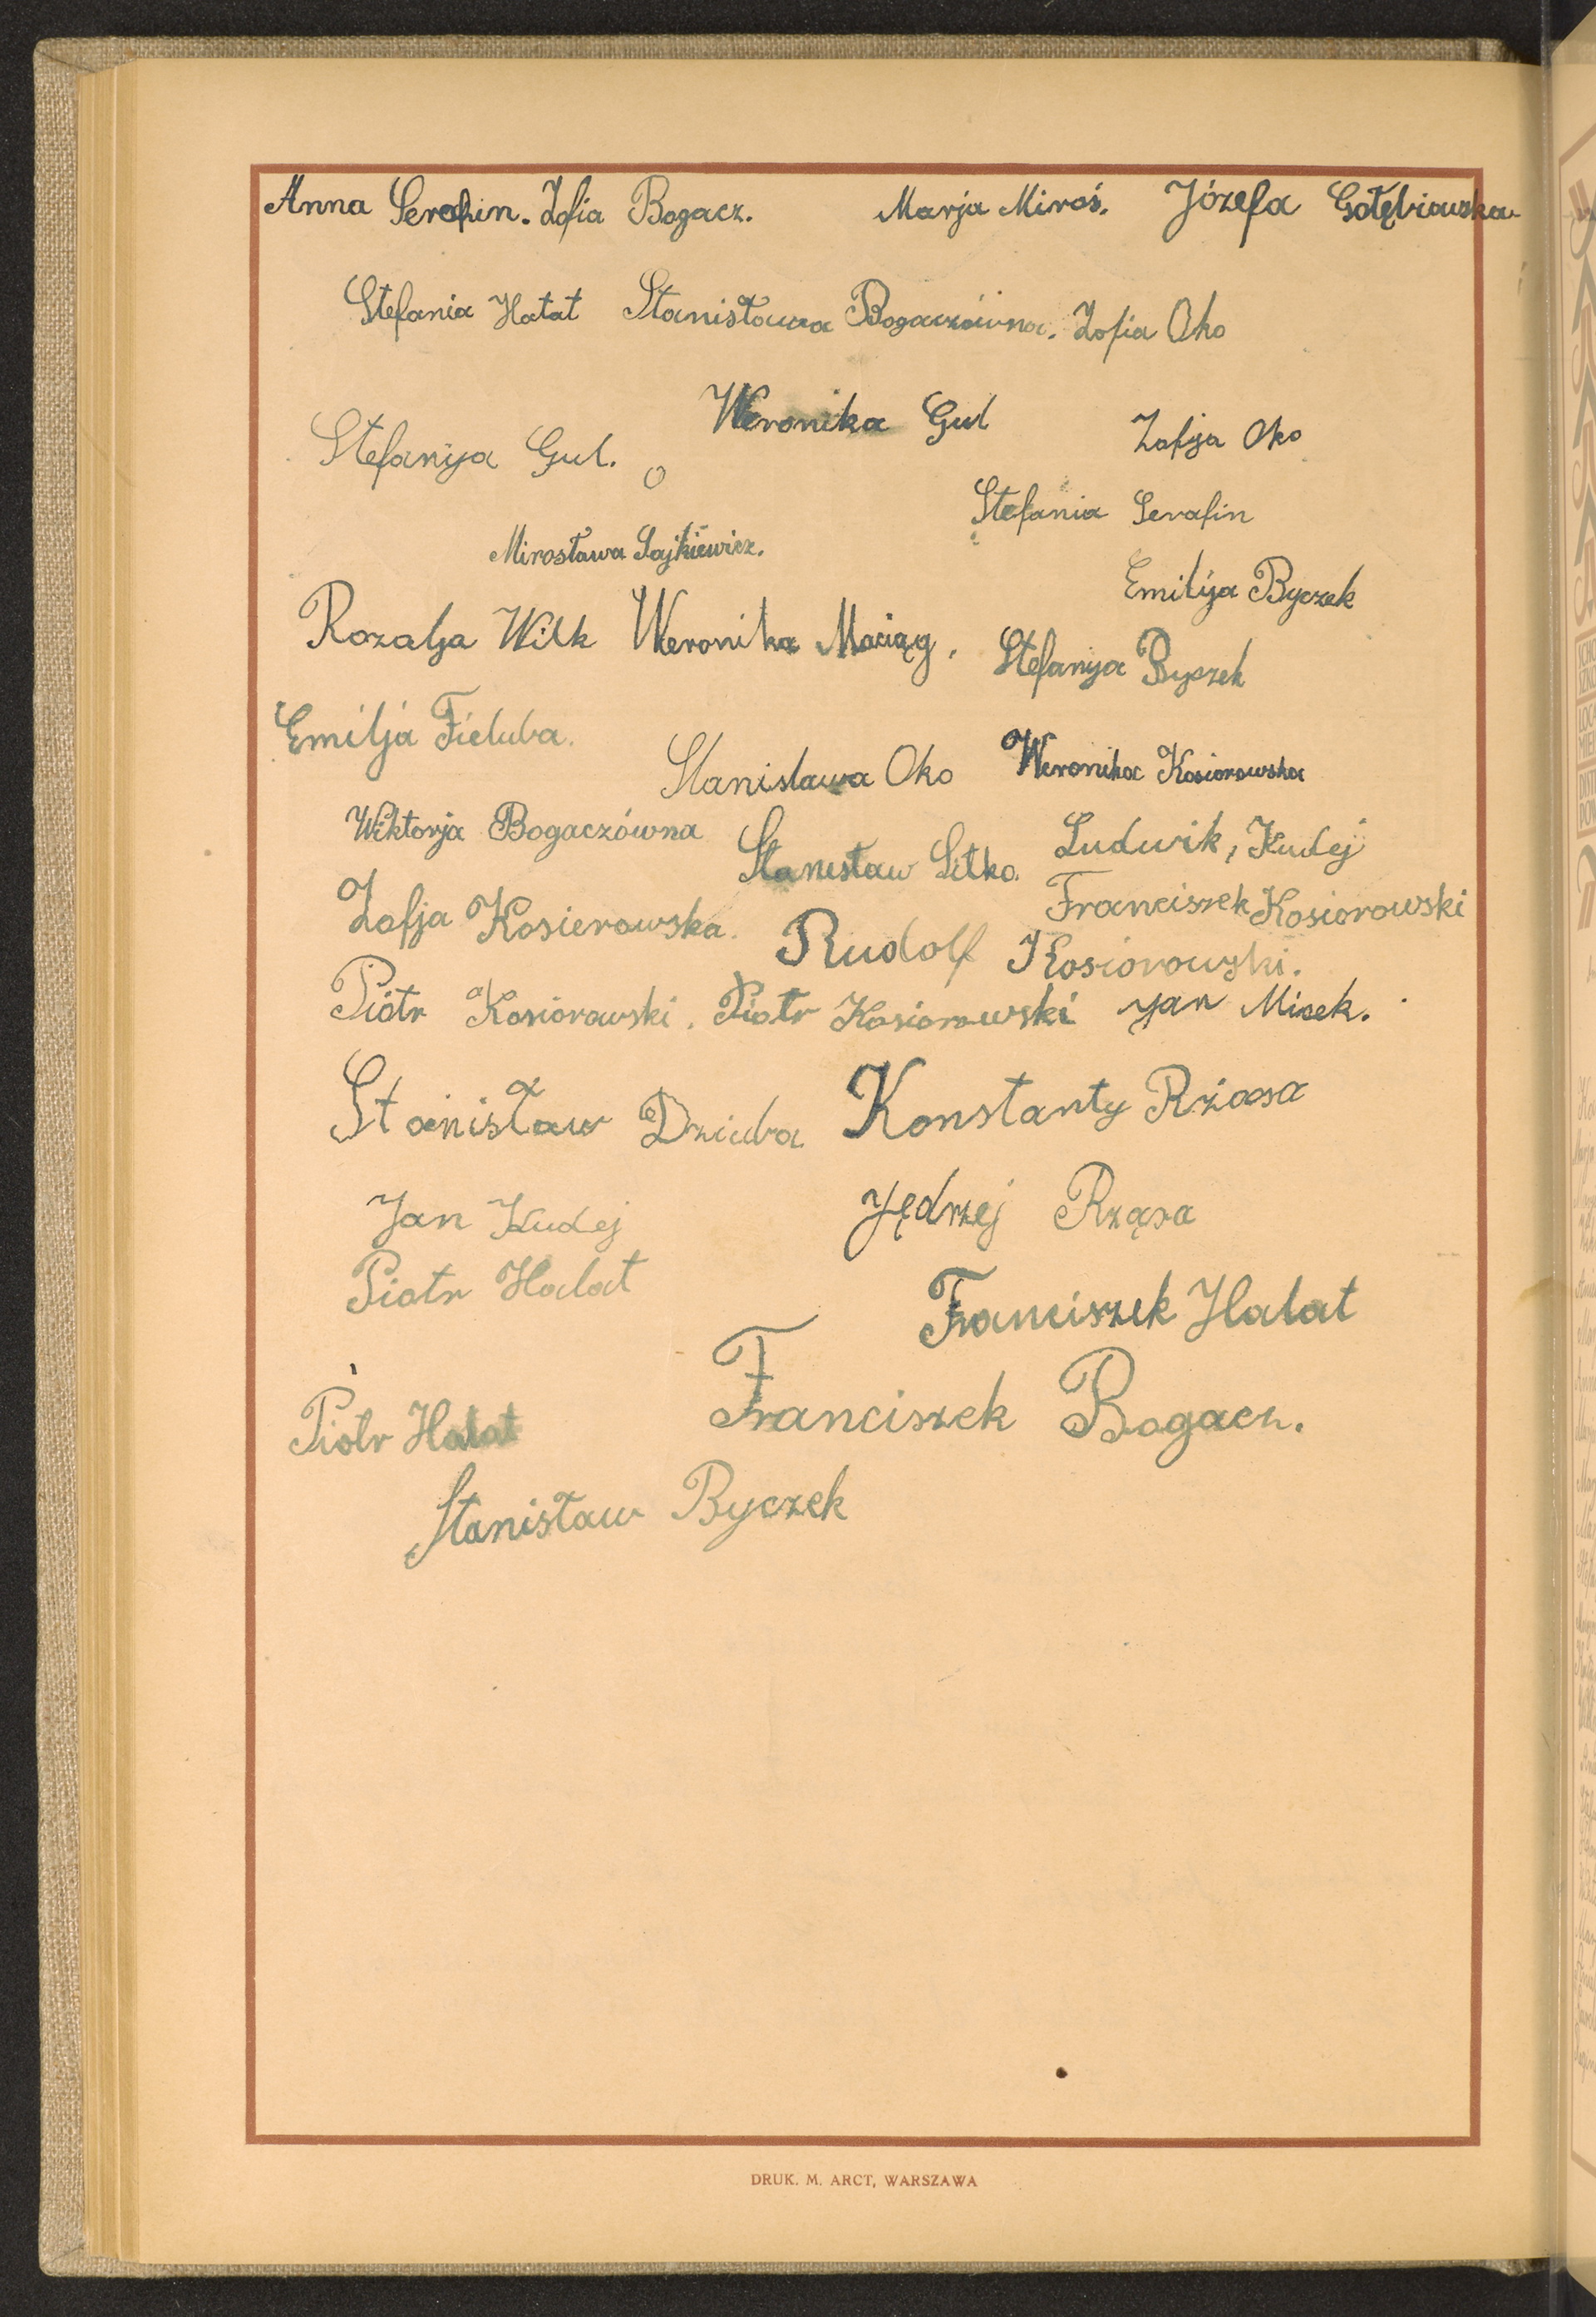 Anna Serafin. Zofia Bogacz. Marja Miroś. Józefa Gołębiowska
Stefania Hałat Stanisława Bogaczówna. Zofia Oko
Weronika Gul
Stefanija Gul. Zofija Oko
Stefania Serafin
Mirosława Sajkiewicz.
Emilija Byczek
Rozalja Wilk Weronika Maciąg. Stefanija Byczek
Emilja Fieluba.
Stanisława Oko Weronika Kosiorowska
Wiktorja Bogaczówna Stanisław Sitko. Ludwik, Kudej
Zofja Kosierowska. Franciszek Kosiorowski
Rudolf Kosiorowski.
Piotr Kosiorowski. Piotr Kosiorowski Jan Misek.
Stanisław Dziuba Konstanty Rżasa
Jan Kudej Jędrzej Rząsa
Piotr Halat Franciszek Halat
Piotr Halat Franciszek Bogacz.
Stanisław Byczek
DRUK. M. ARCT, WARSZAWA